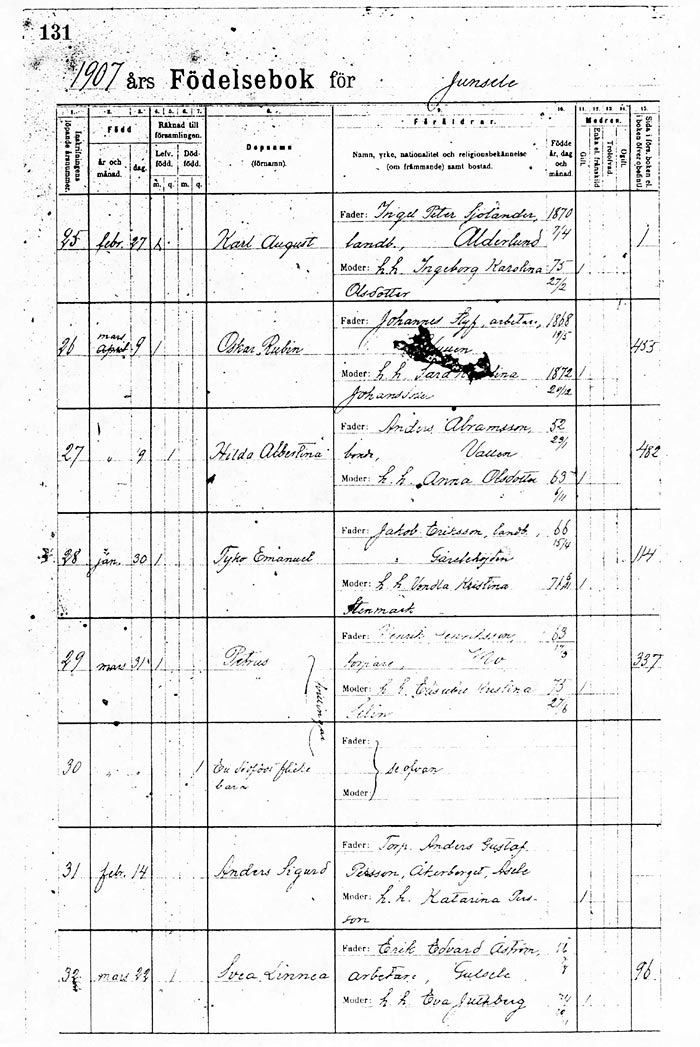 131
1907 års Födelsebok för Junsele
1. 2. 3. 4. 5. 6. 7. 8. 9. 10. 11. 12. 13. 14. 15.
Inskrifningens löpande årsnummer.
Född
år och månad.
dag.
Räknad till församlingen.
Lefv. född. Död- född.
m. q. m. q.
Dopnamn
(förnamn).
Föräldrar.
Namn, yrke, nationalitet och religionsbekännelse
(om främmande) samt bostad.
Födde år, dag och månad.
Modren.
Gift.
Enka el. frånskild
Trolofvad.
Ogift.
Sida i förs. boken el. i boken öfver obefintl.
Fader: Ingel Peter Sjölander, 1870
25 febr. 27 1 Karl August landb., Alderlund 7/4 1
Moder: h.h. Ingeborg Karolina 75 1
Olsdotter 27/2
Fader: Johannes Flyf, arbetare, 1868
mars 19/5
26 April 9 1 Oskar Rubin 453
Moder: h.h. Sara 1872 1
Johansdotter 20/12
Fader: Anders Abramsson, 52
27 " 9 1 Hilda Albertina bonde, Vallen 29/1 482
Moder: h.h. Anna Olsdotter 63 1
6/11
Fader: Jakob Eriksson, landb., 66
15/4
28 jan. 30 1 Tyko Emanuel Gårelehöjden 114
Moder: h h Vendla Kristina 71 1
Stenmark
Fader: Henrik Henriksson, 63
29 mars 31 1 Petrus torpare, Mo 17/3 337
Moder: h.h. Elisabe Kristina 75 1
27/6
tvillingar
Fader:
30 " " 1 En dödfödt flicke se ofvan
barn
Moder:
Fader: Torp. Anders Gustaf
31 febr. 14 Anders Sigurd Persson, Åkerberget, Åsele
Moder: h.h. Katarina Pers- 1
son
Fader: Erik Edvard Åström,
32 mars 22 1 Svea Linnea arbetare, Gulsele 96
Moder: h h Eva 1